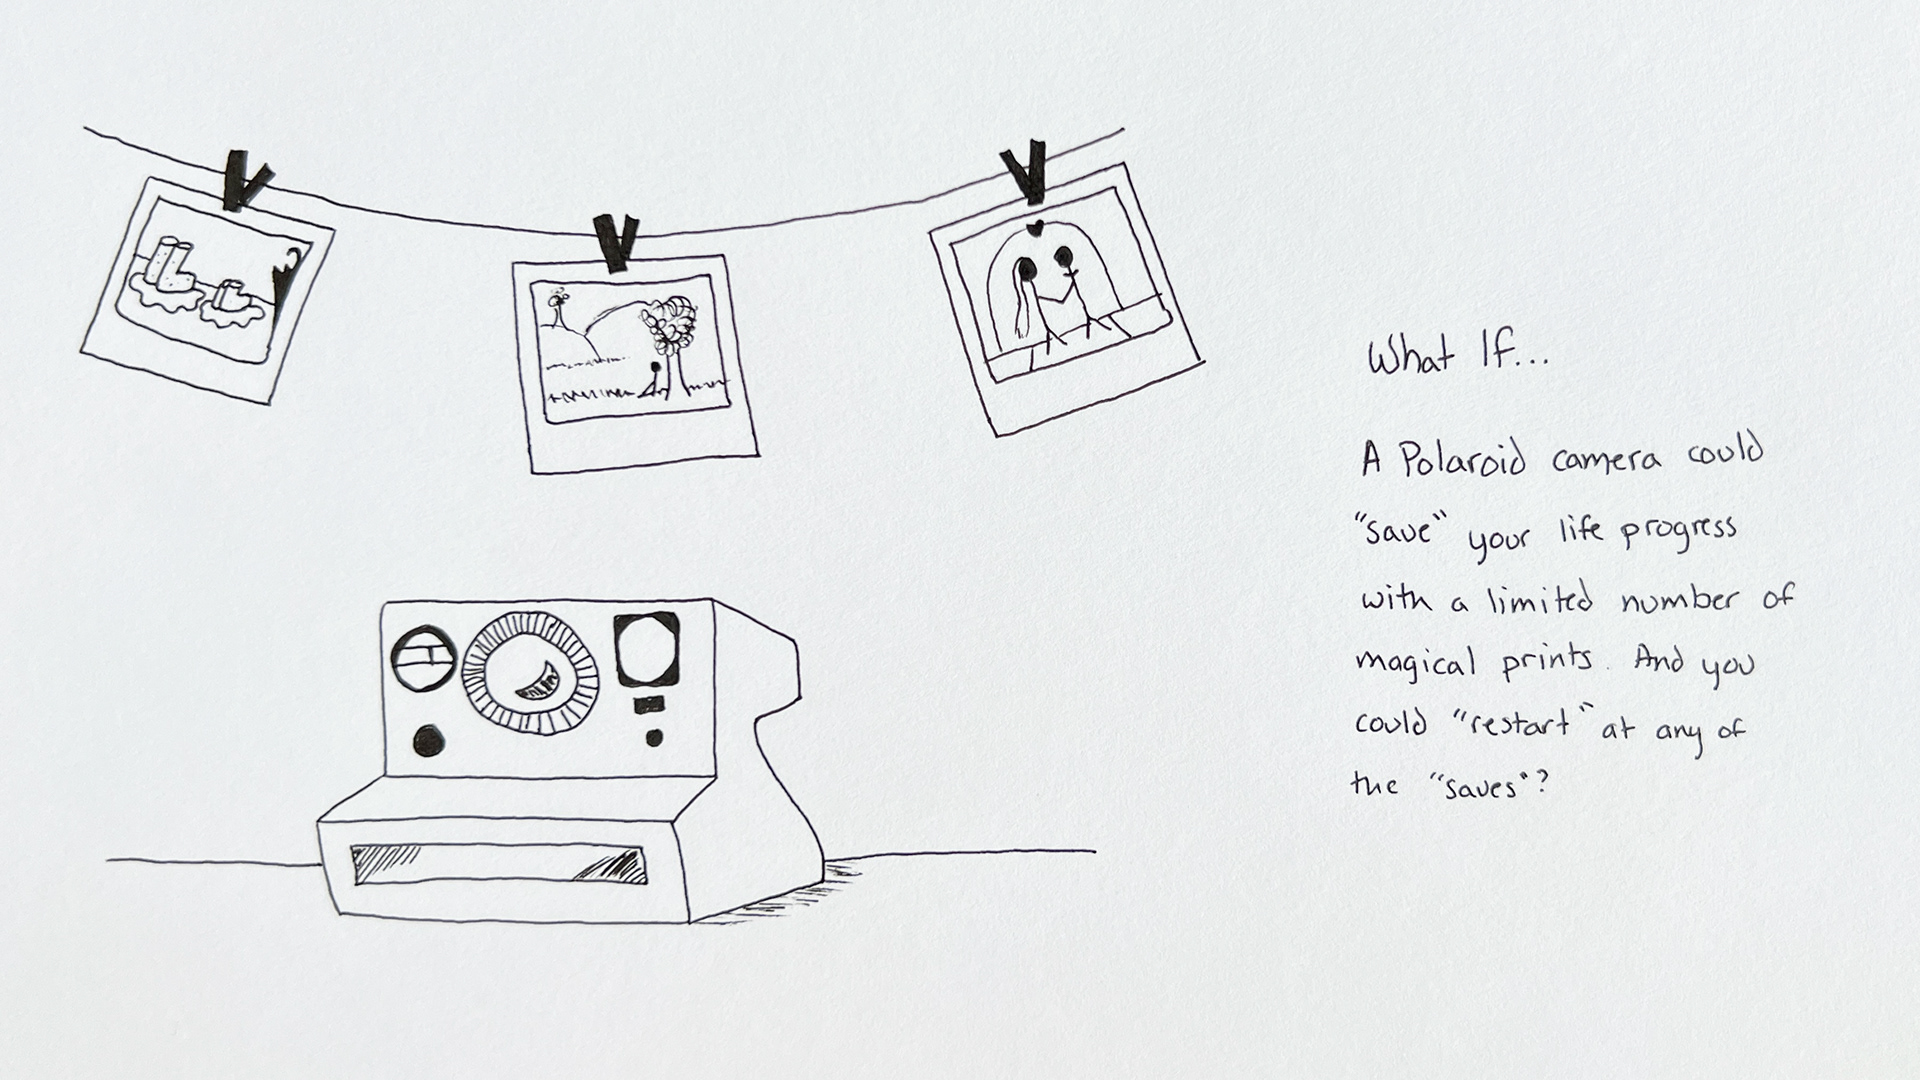 What If...
A Polaroid camera could
"save" your life progress
with a limited number of
magical prints. And you
could "restart" at any of
the "saves"?